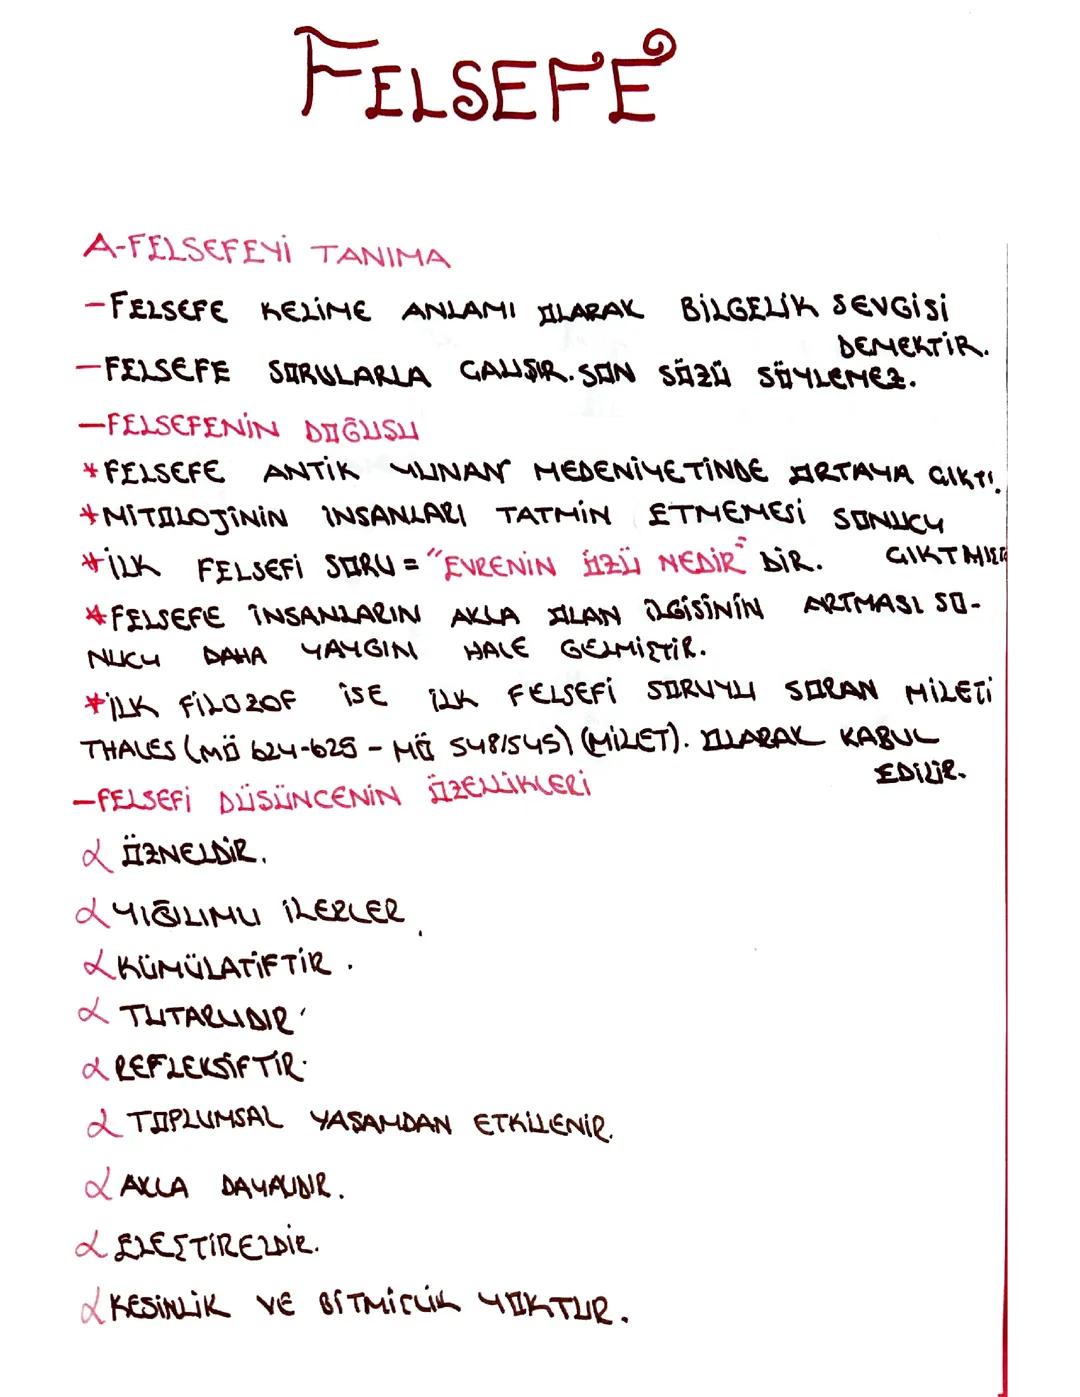 FELSEFE
A-FELSEFEYİ TANIMA
-FELSEFE KELİME ANLAMI OLARAK BİLGELİK SEVGİSİ
DEMEKTİR.
-FELSEFE SORULARLA ÇALIŞIR. SON SÖZÜ SÖYLEMEZ.
-FELSEFENİN DOĞUSU
*FELSEFE ANTİK YUNAN MEDENİYETİNDE ORTAYA ÇIKTI.
*MİTOLOJİNİN İNSANLARI TATMİN ETMEMESİ SONUCU
*İLK FELSEFİ SORU = "EVRENİN ÖZÜ NEDİR" DİR.
*FELSEFE İNSANLARIN AKLA OLAN İLGİSİNİN ARTMASI SO-
NUCU DAHA YAYGIN HALE GELMİŞTİR.
*İLK FİLOZOF İSE İLK FELSEFİ SORUYU SORAN MİLETİ
THALES (MÖ 624-625 - MÖ 548/545) (MİLET). OLARAK KABUL
EDİLİR.
-FELSEFİ DÜSÜNCENİN ÖZELLİKLERİ
α ÖZNELDİR.
α YIĞILIMLI İLERLER.
α KÜMÜLATİFTİR.
α TUTARLIDIR
α REFLEKSİFTİR.
α TOPLUMSAL YAŞAMDAN ETKİLENİR.
α AKLA DAYALIDIR.
α ELEŞTİRELDİR.
α KESİNLİK VE BİTMİŞLİK YOKTUR.